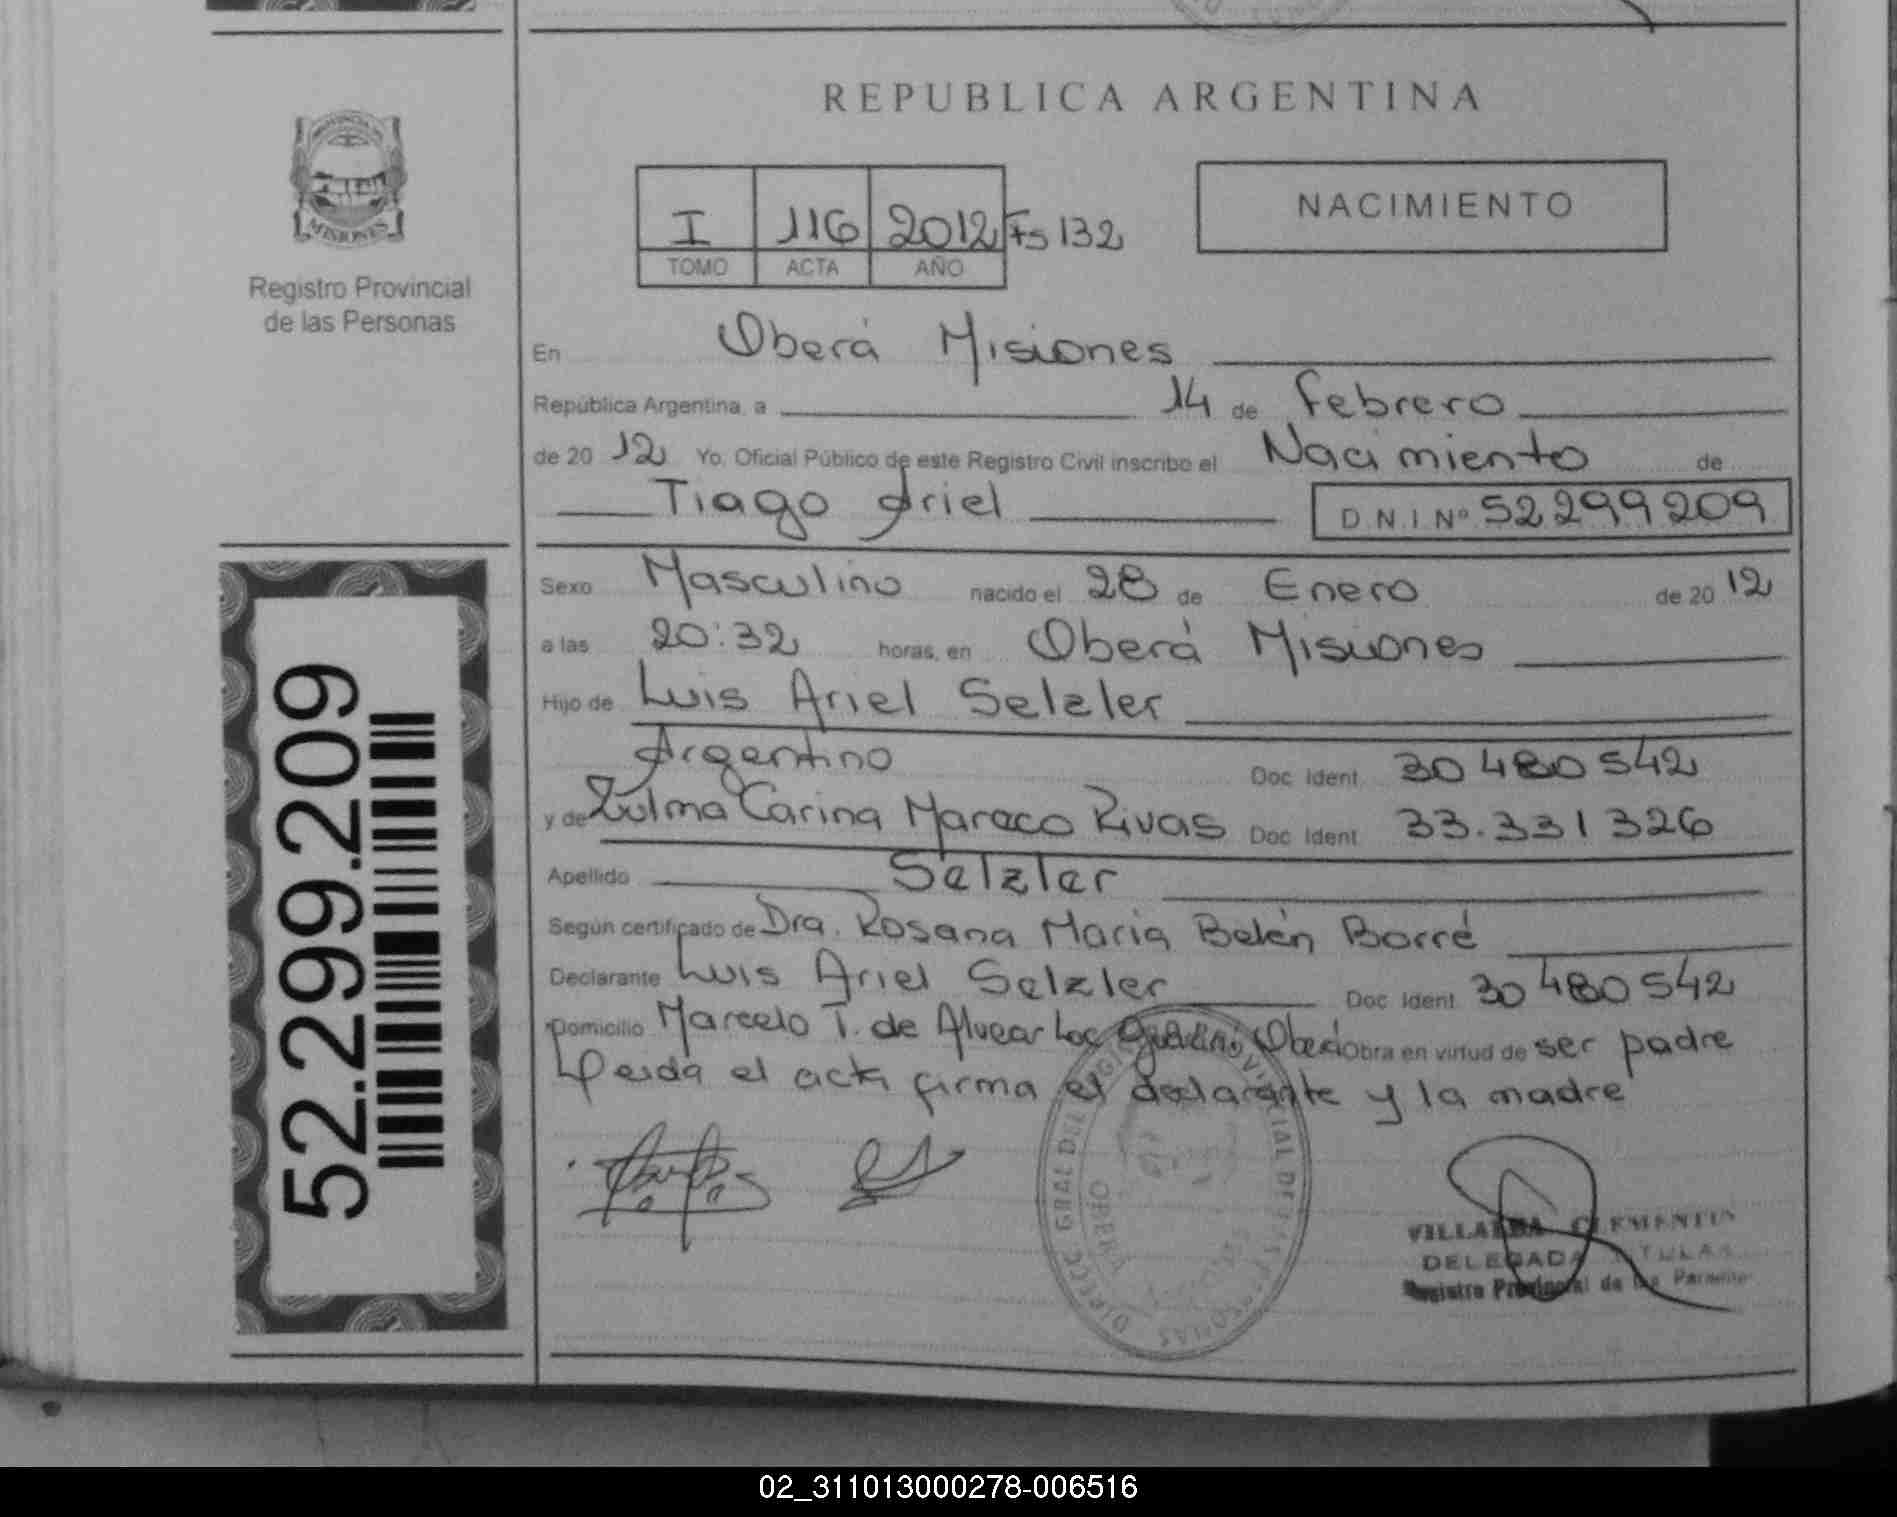 REPUBLICA ARGENTINA
MISIONES
Registro Provincial
de las Personas
I 116 2012 Fs 132
TOMO ACTA AÑO
NACIMIENTO
En Oberá Misiones
República Argentina, a 14 de Febrero
de 20 12 Yo, Oficial Público de este Registro Civil inscribo el Nacimiento de
Tiago Ariel D.N.I Nº 52299209
Sexo Masculino nacido el 28 de Enero de 20 12
a las 20:32 horas, en Oberá Misiones
Hijo de Luis Ariel Selzler
Argentino Doc Ident 30480542
y de Zulma Carina Maraco Rivas Doc Ident 33.331326
Apellido Selzler
Según certificado de Dra. Rosana Maria Belén Borré
Declarante Luis Ariel Selzler Doc Ident 30480542
Domicilio Marcelo T. de Alvear Loc Oberá Obra en virtud de ser padre
Leida el acta firma el declarante y la madre
52.299.209
DIRECC GRAL DEL DE LAS PERSONAS
OBERA
VILLALBA CLEMENTIN
DELEGADA TITULAR
Registro Provincial de las
02_311013000278-006516